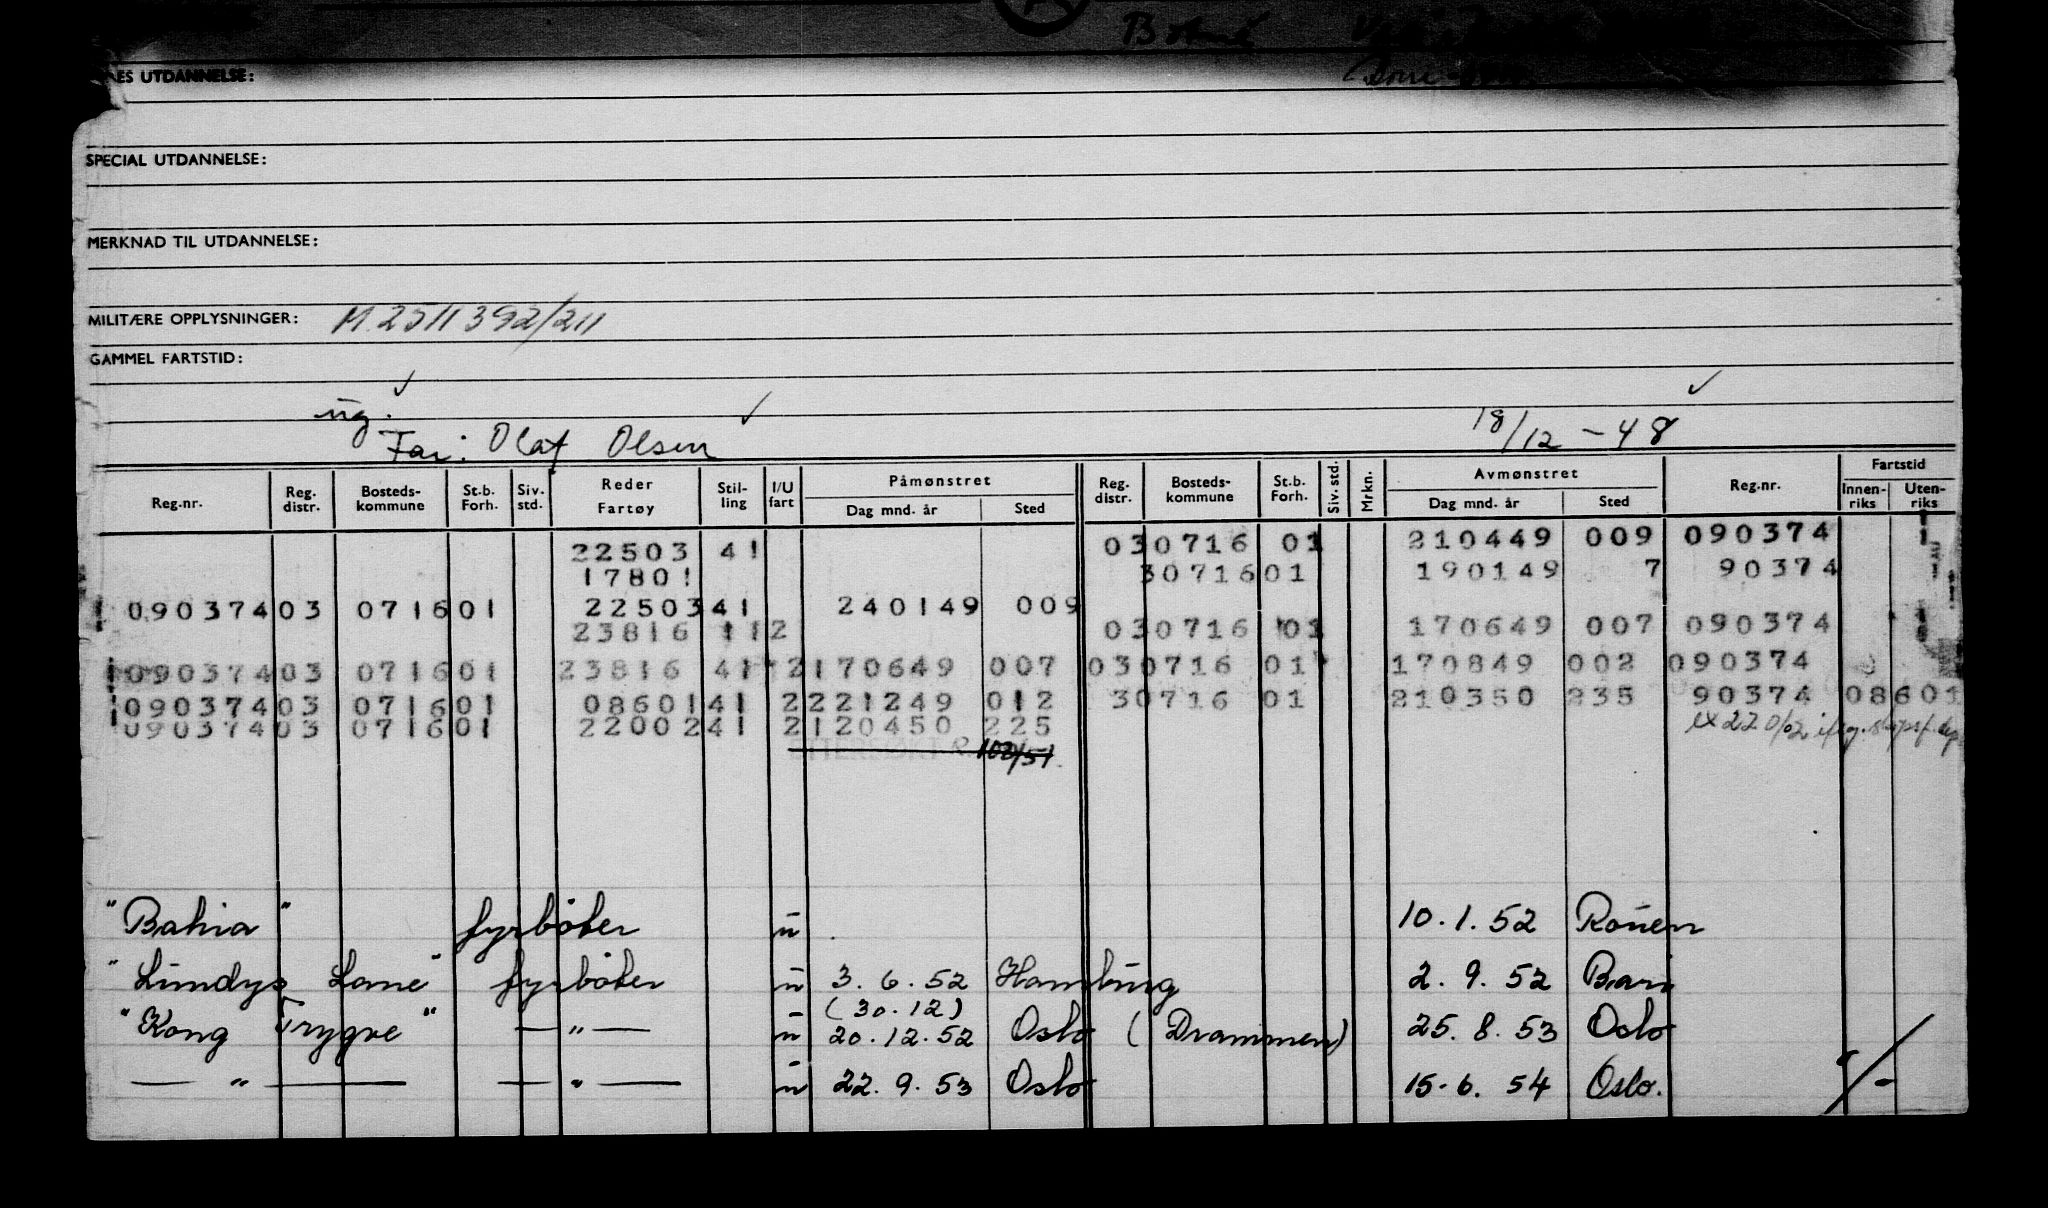 UTDANNELSE:
SPECIAL UTDANNELSE:
MERKNAD TIL UTDANNELSE:
MILITÆRE OPPLYSNINGER: M.2511392/211
GAMMEL FARTSTID:
ug.
Far: Olaf Olsen 18/12 - 48
Reg.nr. Reg. distr. Bosteds-kommune St.b. Forh. Siv. std. Reder Fartøy Stil-ling I/U fart Påmønstret Dag mnd. år Sted Reg. distr. Bosteds-kommune St.b. Forh. Siv. std. Mrkn. Avmønstret Dag mnd. år Sted Reg.nr. Fartstid Innen-riks Uten-riks
22503 41 030716 01 210449 009 090374
17801 30716 01 190149 7 90374
090374 03 0716 01 22503 41 240149 009
23816 112 030716 01 170649 007 090374
090374 03 0716 01 23816 41 2 170649 007 030716 01 170849 002 090374
090374 03 0716 01 08601 41 2 221249 012 30716 01 210350 235 90374 08601
090374 03 0716 01 22002 41 2 120450 225
"Bahia" fyrbøter u 10.1.52 Rouen
"Lundys Lane" fyrbøter u 3.6.52 Hamburg 2.9.52 Bari
(30.12)
"Kong Trygve" — " — u 20.12.52 Oslo (Drammen) 25.8.53 Oslo
— " — — " — u 22.9.53 Oslo 15.6.54 Oslo.